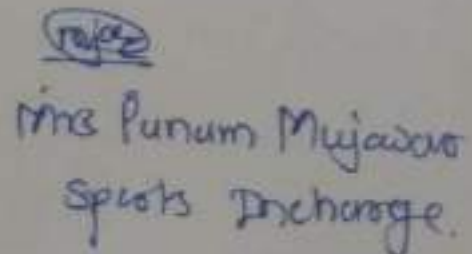 Mrs Punum Mujawar
Sports Incharge.